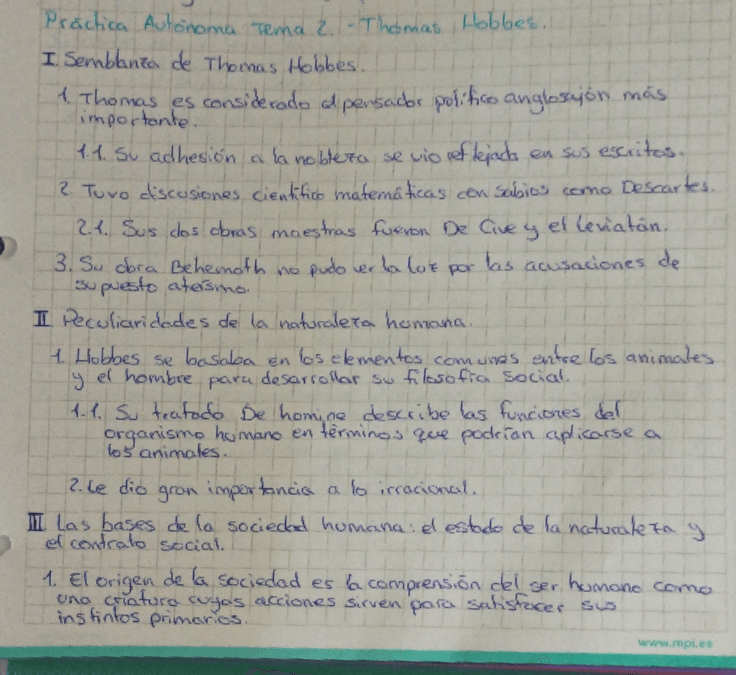 Práctica Autónoma Tema 2. - Thomas Hobbes.
I. Semblanza de Thomas Hobbes.
1. Thomas es considerado el pensador político anglosajón más
importante.
1.1. Su adhesión a la nobleza se vio reflejada en sus escritos.
2. Tuvo discusiones científico matemáticas con sabios como Descartes.
2.1. Sus dos obras maestras fueron De Cive y el Leviatán.
3. Su obra Behemoth no pudo ver la luz por las acusaciones de
supuesto ateísmo.
II Peculiaridades de la naturaleza humana.
1. Hobbes se basaba en los elementos comunes entre los animales
y el hombre para desarrollar su filosofía social.
1.1. Su tratado De homine describe las funciones del
organismo humano en términos que podrían aplicarse a
los animales.
2. Le dio gran importancia a lo irracional.
III Las bases de la sociedad humana: el estado de la naturaleza y
el contrato social.
1. El origen de la sociedad es la comprensión del ser humano como
una criatura cuyas acciones sirven para satisfacer sus
instintos primarios.
www.mpi.es